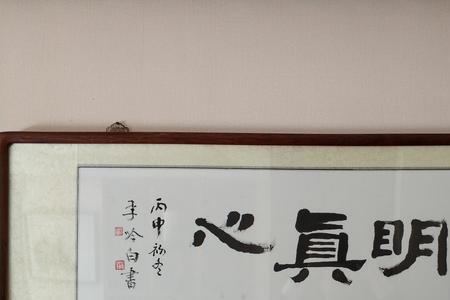 明真心
丙申初冬
李吟白書